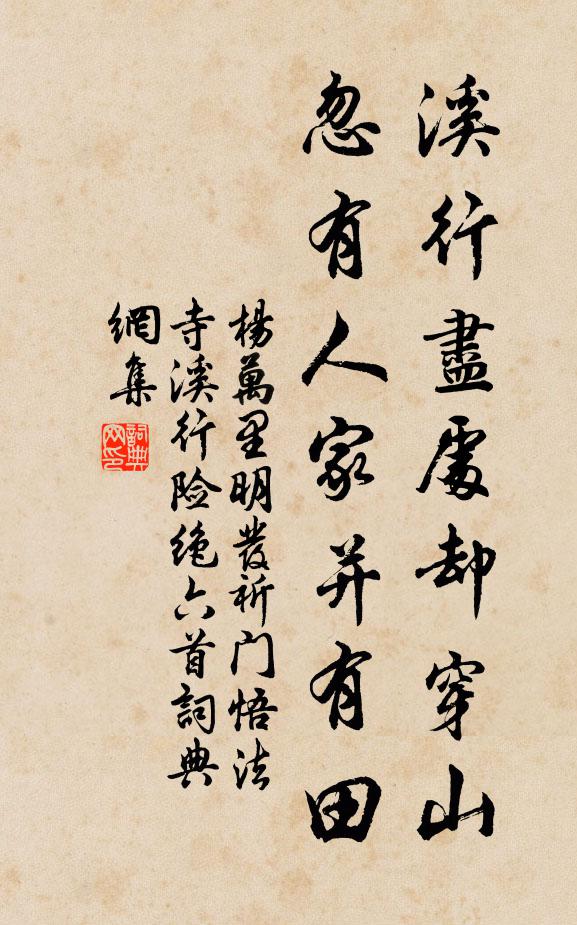 溪行盡處却穿山
忽有人家并有田
楊萬里明發祈门悟法
寺溪行险绝六首詞典
網集
詞典
网印